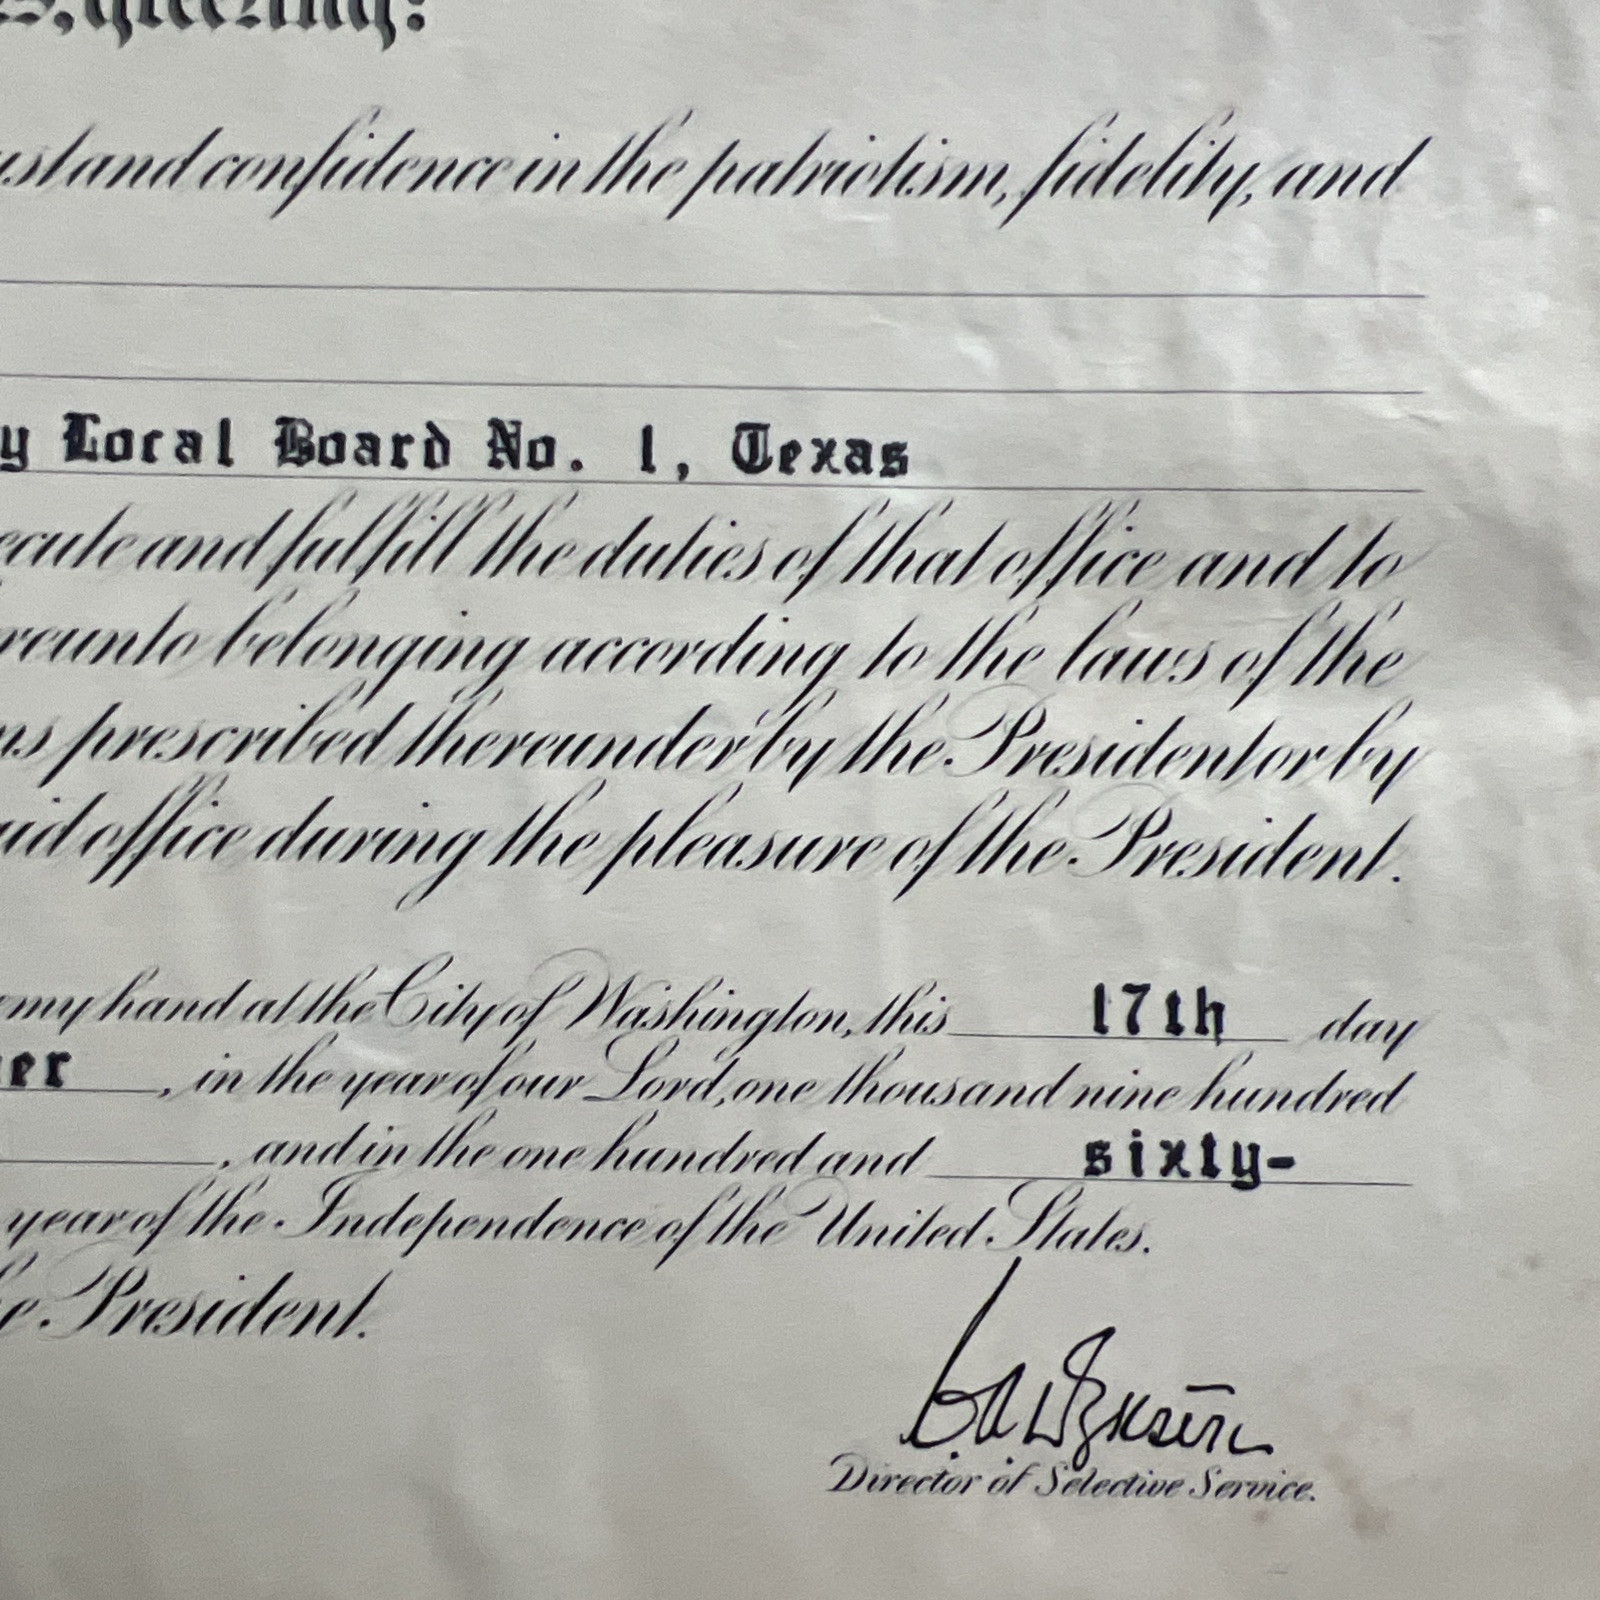 s, greeting:
ust and confidence in the patriotism, fidelity, and
y Local Board No. 1, Texas
ecute and fulfill the duties of that office and to
reunto belonging according to the laws of the
ns prescribed thereunder by the President or by
aid office during the pleasure of the President.
my hand at the City of Washington, this 17th day
er, in the year of our Lord, one thousand nine hundred
, and in the one hundred and sixty-
year of the Independence of the United States.
e President.
Director of Selective Service.